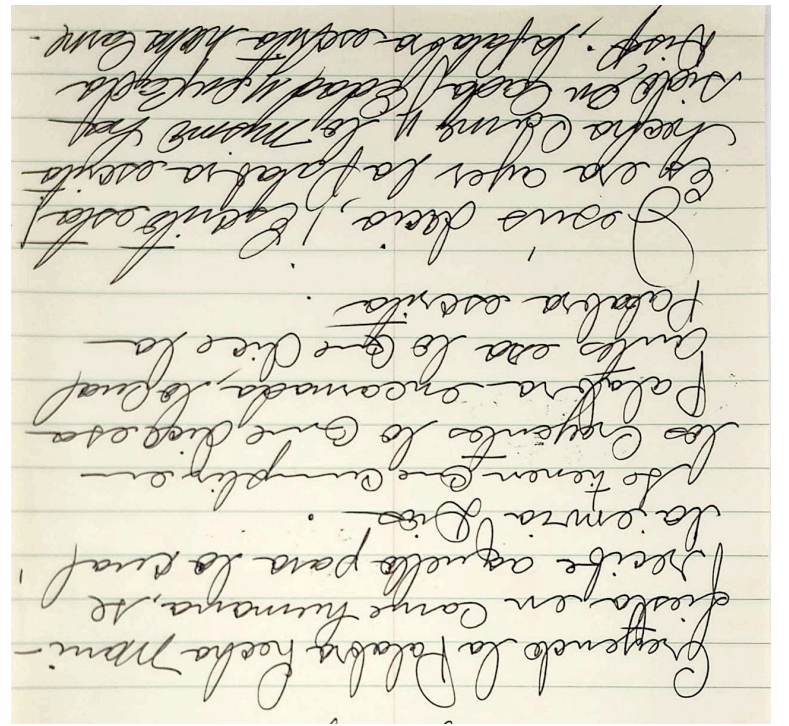 Creyendo la Palabra hecha mani-
fiesta en carne humana, se
recibe aquello para lo cual
la envia Dios.
Se tienen que cumplir en
los creyentes lo que dice esa
Palabra encarnada, lo cual
antes esa lo que dice la
Palabra escrita.
Jesús decia, ¡Escrito está!
Es era ayer la Palabra escrita
hecha carne y lo mysmo hoy
sido, en cada edad y en cada
Disp; la palabra escrita hecha carne.